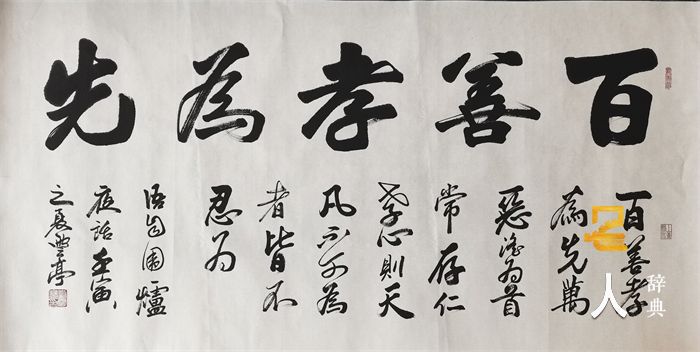 百善孝為先
百善孝
為先萬
惡淫為首
常存仁
孝心則天
凡不可為
者皆不
忍為
語自圍爐
夜話壬寅
之夏亭
人
辞典